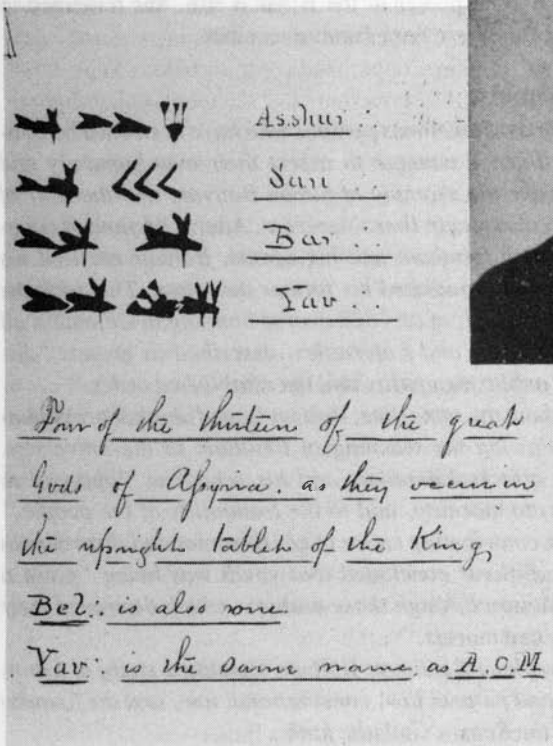 Asshur.
San.
Bar.
Yav.
Four of the thirteen of the great
Gods of Assyria. as they occur in
the upright Tablet of the King,
Bel. is also one
Yav is the same name as A.O.M